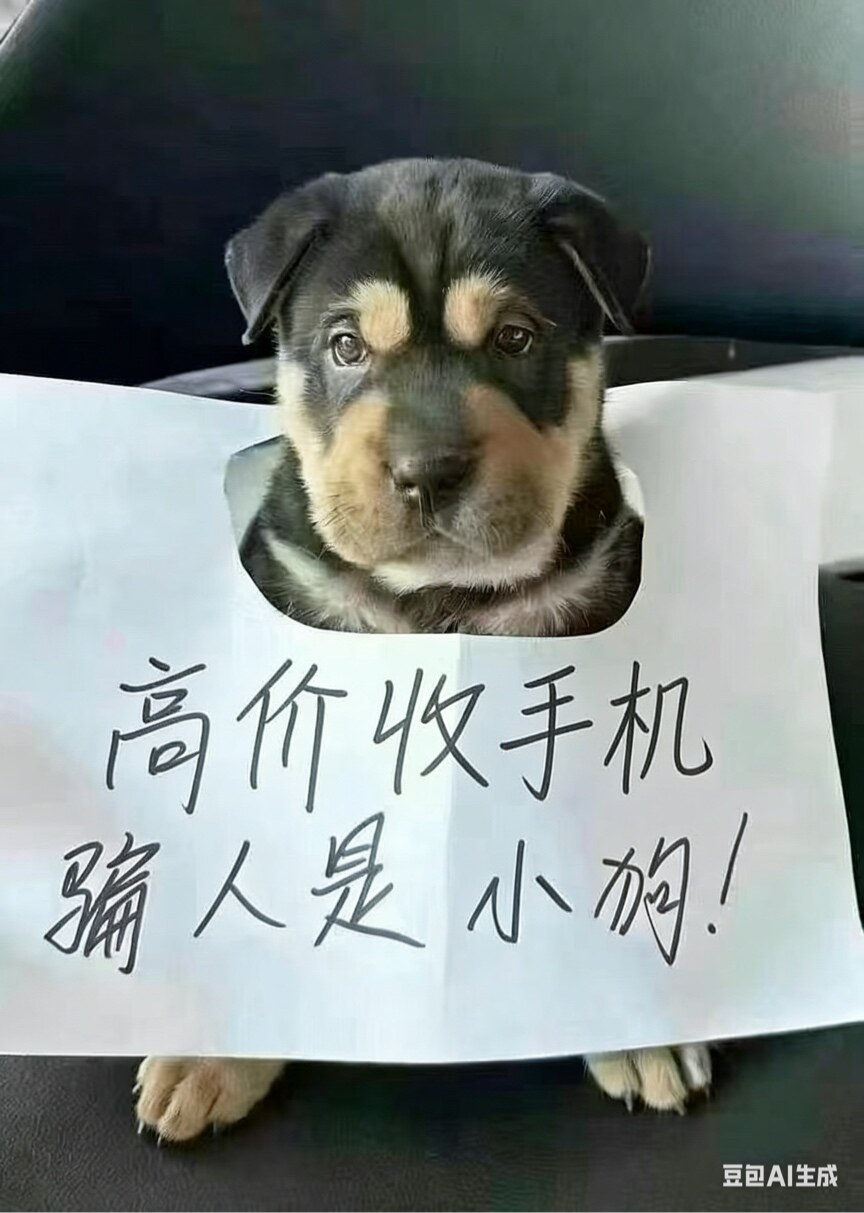 高价收手机
骗人是小狗!
豆包AI生成